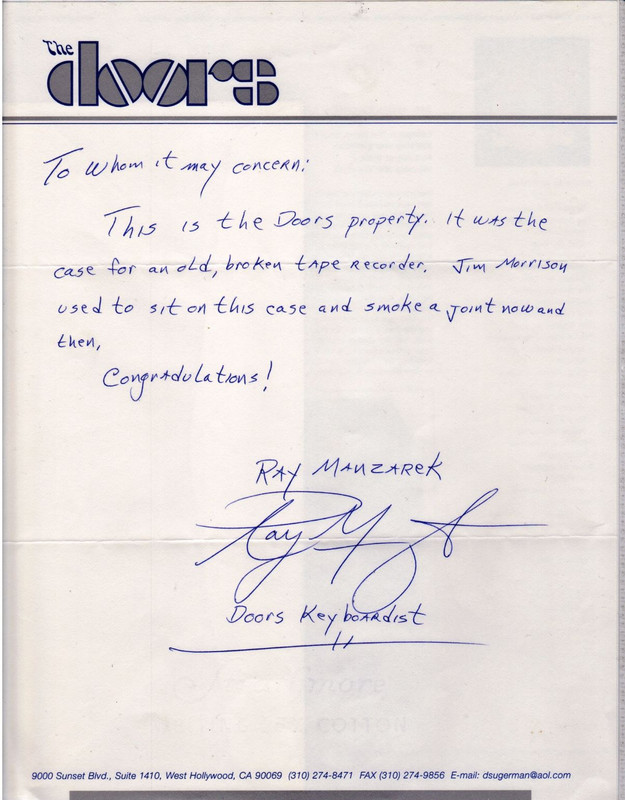 The doors
To whom it may concern:
This is the Doors property. It was the
case for an old, broken tape recorder. Jim Morrison
used to sit on this case and smoke a joint now and
then,
Congradulations!
RAY MANZAREK
Ray M
Doors Keyboardist
9000 Sunset Blvd., Suite 1410, West Hollywood, CA 90069 (310) 274-8471 FAX (310) 274-9856 E-mail: dsugerman@aol.com